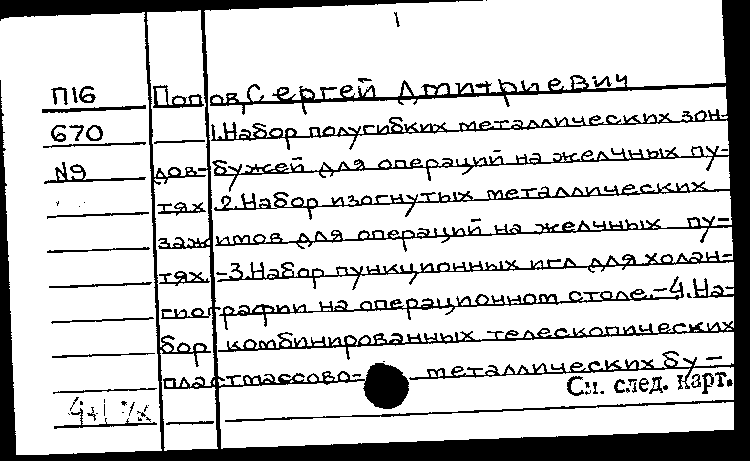 1
П16 Попов, Сергей Дмитриевич
670 1. Набор полугибких металлических зон-
N9 дов-бужей для операций на желчных пу-
тях. 2. Набор изогнутых металлических
зажимов для операций на желчных пу-
тях. -3. Набор пункционных игл для холан-
гиографии на операционном столе. -4. На-
бор комбинированных телескопических
пластмассово- металлических бу-
См. след. карт.